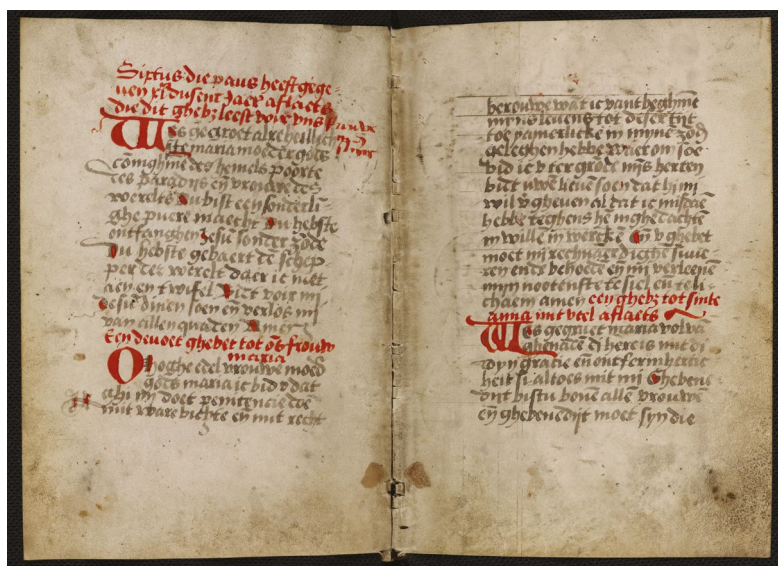 Sixtus die paus heeft gege-
uen xl dusent Jaer aflaets
die dit ghebz leest voir ons
Wes gegroet alre heilichste
maria moeder gods
coninghinne des hemels poorte
des paradijs eñ vrouwe des
werelts Du bist een sonderli-
ghe puere maecht Du hebste
ontfanghen Jesũ sonder zõde
Du hebste gebaert dẽ schep-
per der werelt daer ic niet
aen en twifel Bidt voir mi
Jesũ dinen soen eñ verlos mi
van allen quaden Amen
Een deuoet ghebet tot õs vrouw
maria
O hoghe edel vrouwe moed
gods maria ic bid v dat
ghi mi doet penitencie doe
mit ware biechte eñ mit recht
berouwe wat ic vant beghinne
mijns leuens tot deser tijt
toe jamerlicke in mijne zõdẽ
geleghen hebbe Waer om soe
bid ic v ter groder mijs herten
bidt uwẽ lieuẽ soen dat hi mi
wil vgheuen al dat ic misdaẽ
hebbe teghens hẽ in ghedachtẽ
in willẽ in werckẽ Eñ v ghebet
moet mi rechuaerdicghẽ suue-
ren ende behoedẽ eñ mi verleenẽ
mijn nootorfte te siel eñ te li-
chaem amen een ghebz tot sinte
anna mit veel aflaets
Wes gegruet maria vol vã
ghenadẽ dí here is mit di
dijn gracie eñ ontfermhertic
heit si altoes mit mi Ghebene
dijt bistu bouẽ alle vrouwẽ
eñ ghebenedijt moet sijn die